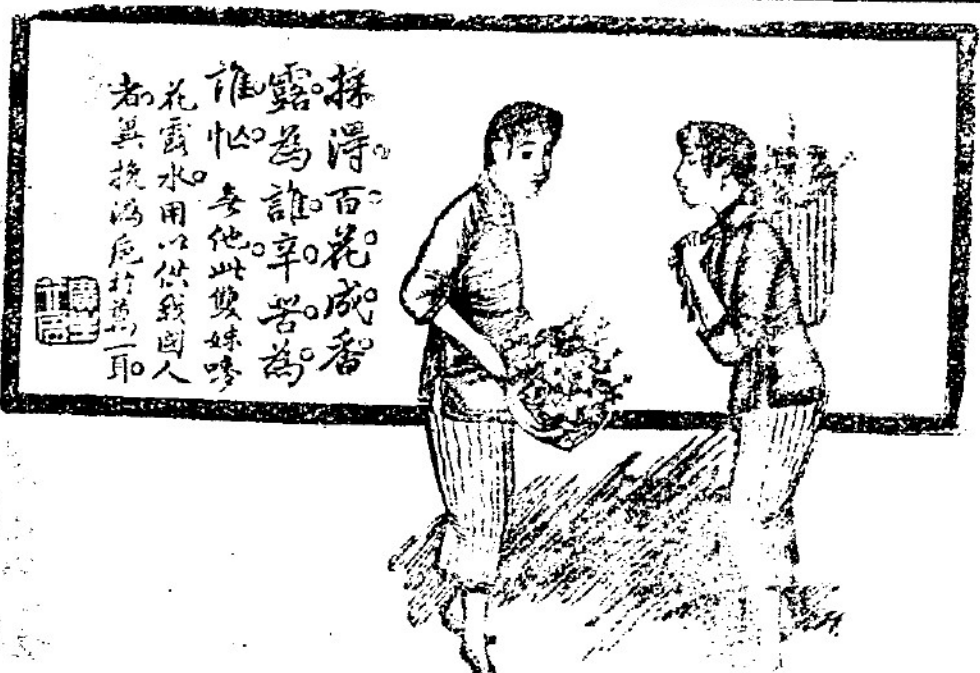 採得百花成香
露為誰辛苦為
誰忙無他此雙妹嘜
花露水用以供我國人
者冀挽漏卮於萬一耳
廣生行